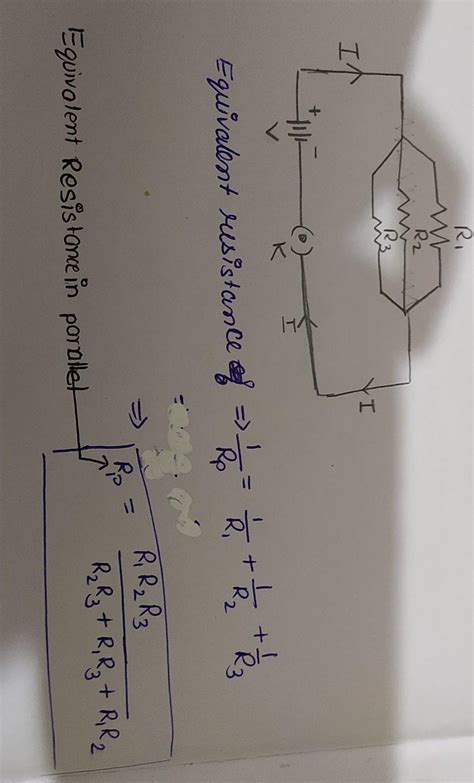 R1
R2
R3
I
I
+ -
V
K
I
Equivalent resistance of ⇒ 1/Rp = 1/R1 + 1/R2 + 1/R3
=
⇒ Rp = R1R2R3 / R2R3 + R1R3 + R1R2
Equivalent Resistance in parallel